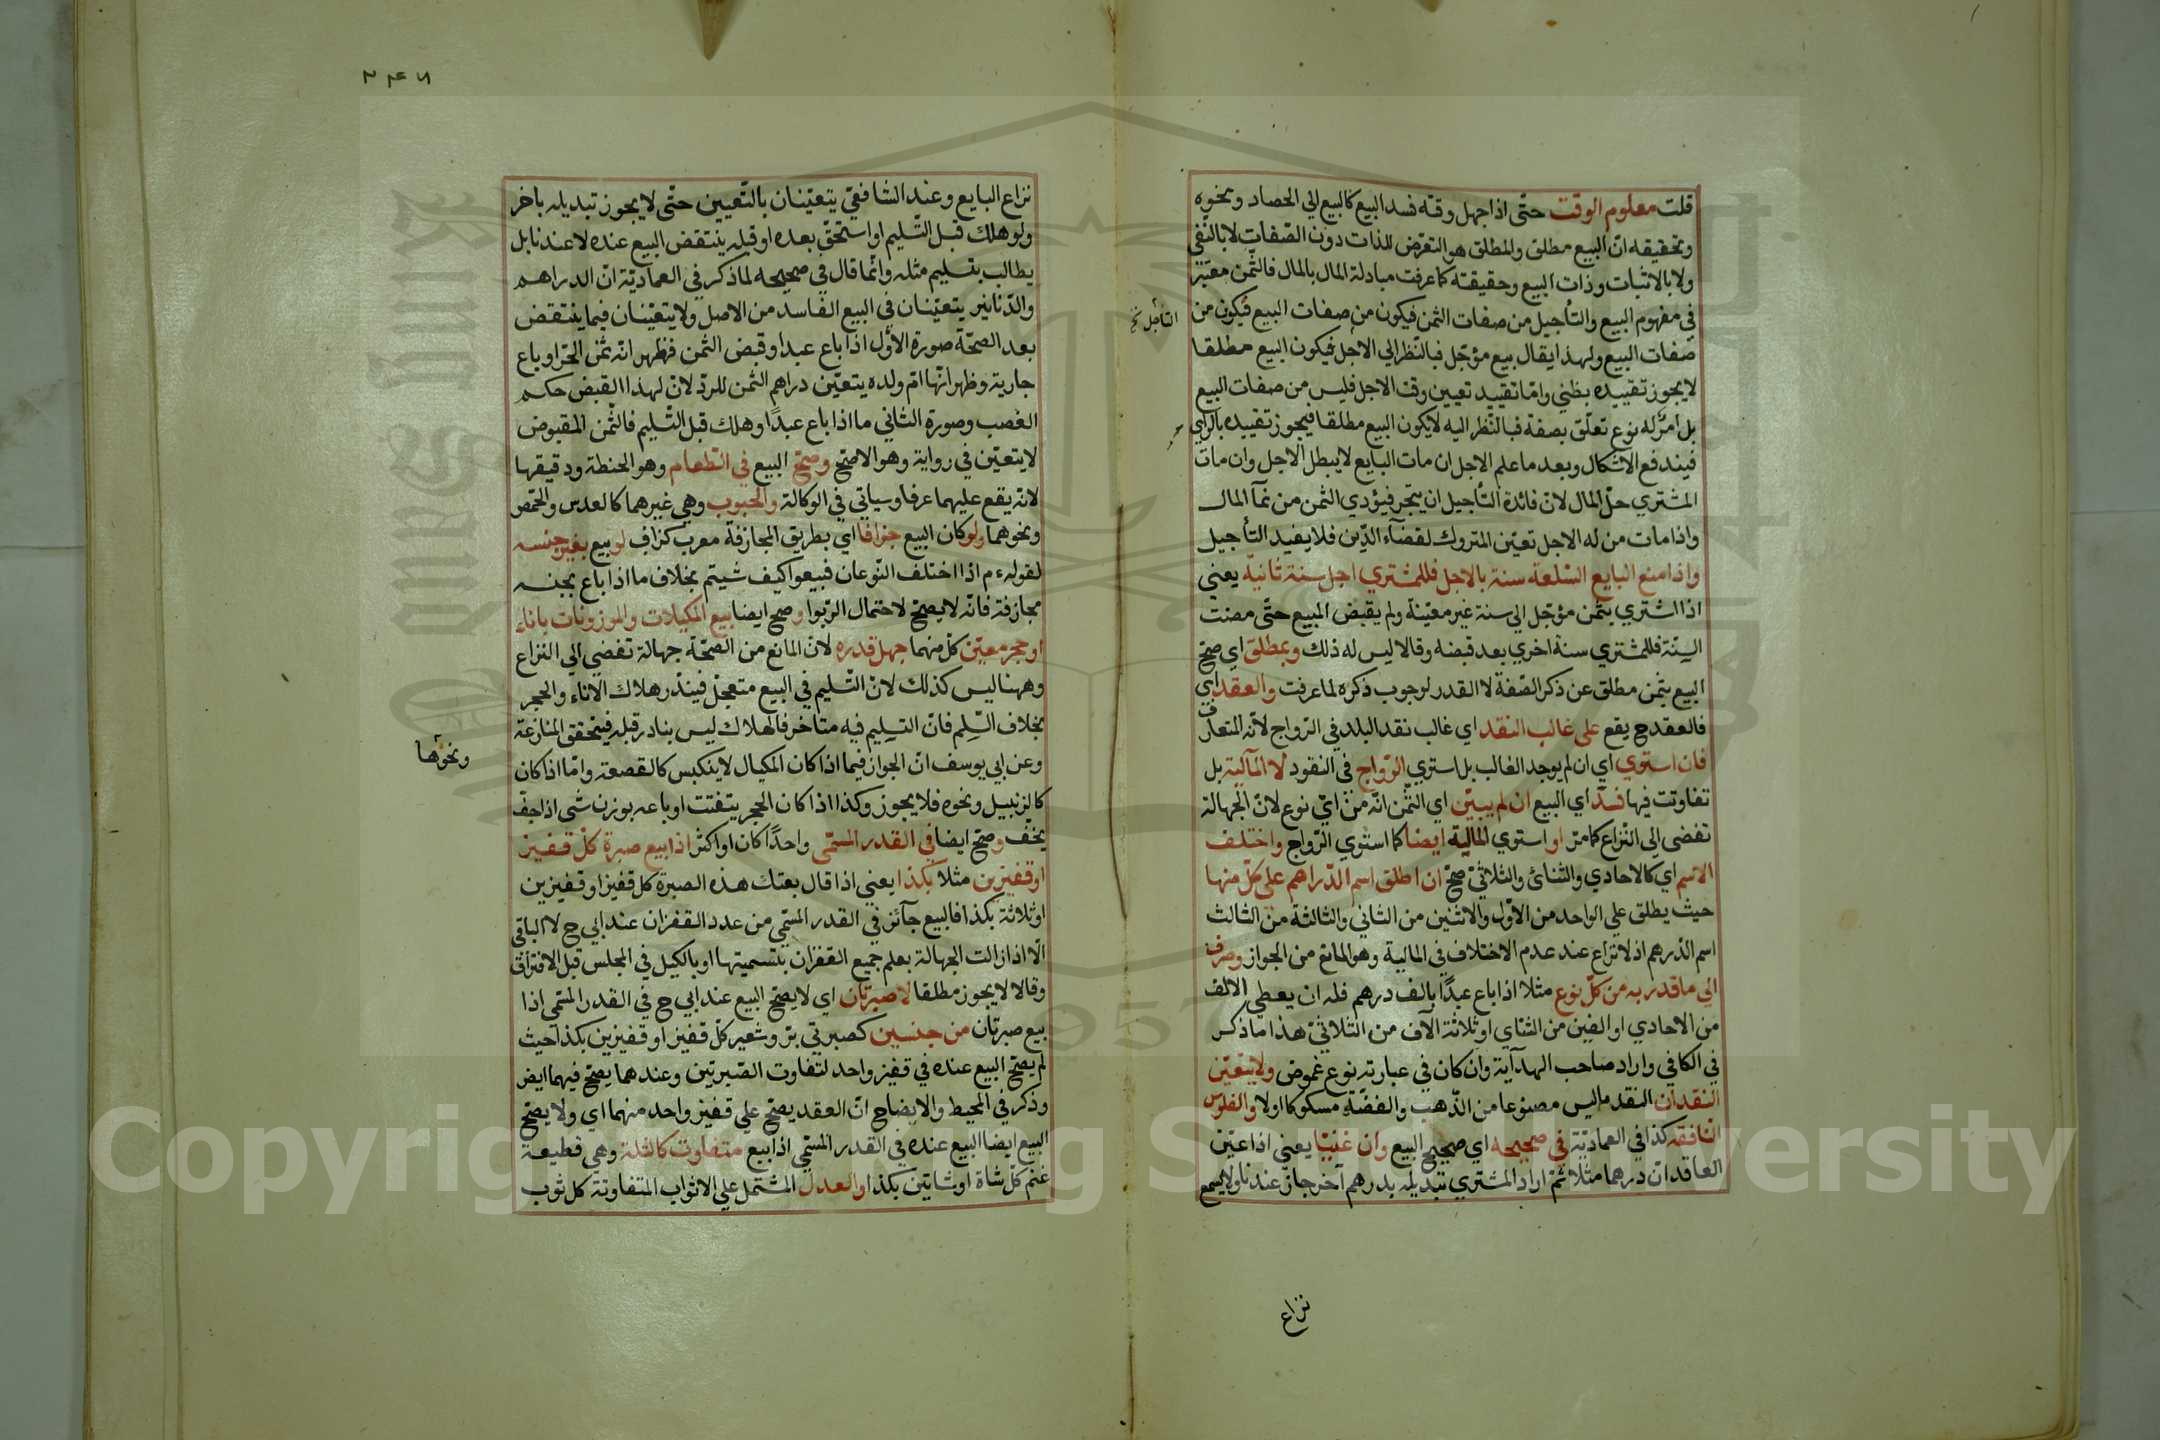 قلت معلوم الوقت حتّى اذا جهل وقته فسد البيع كالبيع الي الحصاد ونحوه
وتحقيقه انّ البيع مطلق والمطلق هو التعرّض للذات دون الصّفات لا بالنّفي
ولا بالاثبات وذات البيع وحقيقته كما عرفت مبادلة المال بالمال فالثّمن معتبر
في مفهوم البيع والتأجيل من صفات الثمن فيكون من صفات البيع فيكون من
صفات البيع ولهذا يقال بيع مؤجّل فبالنّظر الي الاجل فيكون البيع مطلقا
لا يجوز تقييده بظنّي وامّا تقييد تعيين وقت الاجل فليس من صفات البيع
بل امرٌ له نوع تعلّق بصفة فبالنّظر اليه لا يكون البيع مطلقا فيجوز تقييده بالرّاي
فيندفع الاشكال وبعد ما علم الاجل ان مات البايع لا يبطل الاجل وان مات
المشتري حلّ المال لانّ فائدة التأجيل ان يتّجر فيؤدي الثمن من نمآ المال
واذا مات من له الاجل تعيّن المتروك لقضآء الدّين فلا يفيد التأجيل
واذا منع البايع السّلعة سنة بالاجل فللمشتري اجل سنة ثانية يعني
اذا اشتري بثمن مؤجّل الي سنة غير معيّنة ولم يقبض المبيع حتّى مضت
السنة فللمشتري سنة اخري بعد قبضه وقالا ليس له ذلك وبمطلق اي صحّ
البيع بثمن مطلق عن ذكر الصّفة لا القدر لوجوب ذكره لما عرفت والعقد اي
فالعقد ح يقع على غالب النقد اي غالب نقد البلد في الرّواج لانّه المتعارف
فان استوي اي ان لم يوجد الغالب بل استري الرّواج في النقود لا الماليّة بل
تفاوتت فيها فسد اي البيع ان لم يبيّن اي الثّمن انّه من ايّ نوع لانّ الجهالة
تفضى الى النّزاع كما مرّ او استوي المالية ايضا كما استوي الرّواج واختلف
الاسم اي كالاحادي والثنائ والثلاثيّ صحّ ان اطلق اسم الدّراهم على كلّ منها
حيث يطلق علي الواحد من الاوّل والاثنين من الثاني والثالثة من الثالث
اسم الدّرهم اذ لا نزاع عند عدم الاختلاف في المالية وهو المانع من الجواز وصرف
الي ما قدر به من كلّ نوع مثلا اذا باع عبدًا بالف درهم فله ان يعطي الالف
من الاحادي او الفين من الثنائي او ثلاثة الآف من الثّلاثيّ هذا ما ذكر
في الكافي واراد صاحب الهدآية وان كان في عبارته نوع غموض ولا يتعيّن
النقدان النقد ما ليس مصنوعا من الذّهب والفضّة مسكوكا اولا والفلوس
النّافقة كذا في العماديّة في صحيحه اي صحيح البيع وان عيّنا يعني اذا عيّن
العاقدان درهما مثلا ثمّ اراد المشتري تبديله بدرهم آخر جاز عندنا ولا يسمع
التاجل نخ
نزاع
٢٤٧
نزاع البايع وعند الشافعيّ يتعيّنان بالتّعيين حتّى لا يجوز تبديله باخر
ولو هلك قبل التّسليم او استحقّ بعده او قبله ينتقض البيع عنده لا عندنا بل
يطالب بتسليم مثله وانّما قال في صحيحه لما ذكر في العماديّة انّ الدراهم
والدّنانير يتعيّنان في البيع الفاسد من الاصل ولا يتعيّنان فيما ينتقض
بعد الصحّة صورة الاوّل اذا باع عبدا وقبض الثمن فظهر انّه ثمن الحرّ او باع
جارية وظهر انّها امّ ولده يتعيّن دراهم الثمن للردّ لانّ لهذا القبض حكم
الغصب وصورة الثاني ما اذا باع عبدًا وهلك قبل التّسليم فالثّمن المقبوض
لا يتعيّن في رواية وهو الاصحّ وصحّ البيع في الطّعام وهو الحنطة ودقيقها
لانّه يقع عليهما عرفا وسياتي في الوكالة والحبوب وهي غيرهما كالعدس والحمّص
ونحوهما ولو كان البيع جزافا اي بطريق المجازفة معرب كزاف لو بيع بغير جنسه
لقوله ء م اذا اختلف النّوعان فبيعوا كيف شيتم بخلاف ما اذا باع بجنسه
مجازفة فانّه لا يصحّ لاحتمال الرّبوا وصحّ ايضا بيع المكيلات والموزونات باناء
او حجر معيّن كلّ منهما جهل قدره لانّ المانع من الصّحّة جهالة تفضي الي النزاع
وههنا ليس كذلك لانّ التّسليم في البيع متعجّل فيندر هلاك الاناء والحجر
بخلاف السّلم فانّ التسليم فيه متاخر فالهلاك ليس بنادر قبله فيتحقق المنازعة
وعن ابي يوسف انّ الجواز فيما اذا كان المكيال لا ينكبس كالقصعة وامّا اذا كان
كالزنبيل ونحوه فلا يجوز وكذا اذا كان الحجر يتفتت او باعه بوزن شئ اذا جفّ
يخفّ وصحّ ايضا في القدر المسمّى واحدًا كان او اكثر اذا بيع صبرة كلّ قفيز
او قفيزين مثلا بكذا يعني اذا قال بعتك هذه الصبرة كل قفيز او قفيزين
او ثلاثة بكذا فالبيع جآئز في القدر المسمّي من عدد القفزان عند ابي ح لا الباقي
الّا اذا زالت الجهالة بعلم جميع القفزان بتسميتها او بالكيل في المجلس قبل الافتراق
وقالا لا يجوز مطلقا لا صبرتان اي لا يصحّ البيع عند ابي ح في القدر المسّمي اذا
بيع صبرتان من جنسين كصبرتي برّ وشعير كلّ قفيز او قفيزين بكذا حيث
لم يصحّ البيع عنده في قفيز واحد لتفاوت الصّبرتين وعندهما يصحّ فيهما ايض
وذكر في المحيط والايضاح انّ العقد يصحّ علي قفيز واحد منهما اي ولا يصحّ
البيع ايضا البيع عنده في القدر المسمّي اذا بيع متفاوت كالثلة وهي قطيعة
غنم كلّ شاة او شاتين بكذا والعدل المشتمل علي الاثواب المتفاوتة كل ثوب
ونحوها
Copyright © King Saud University
1957